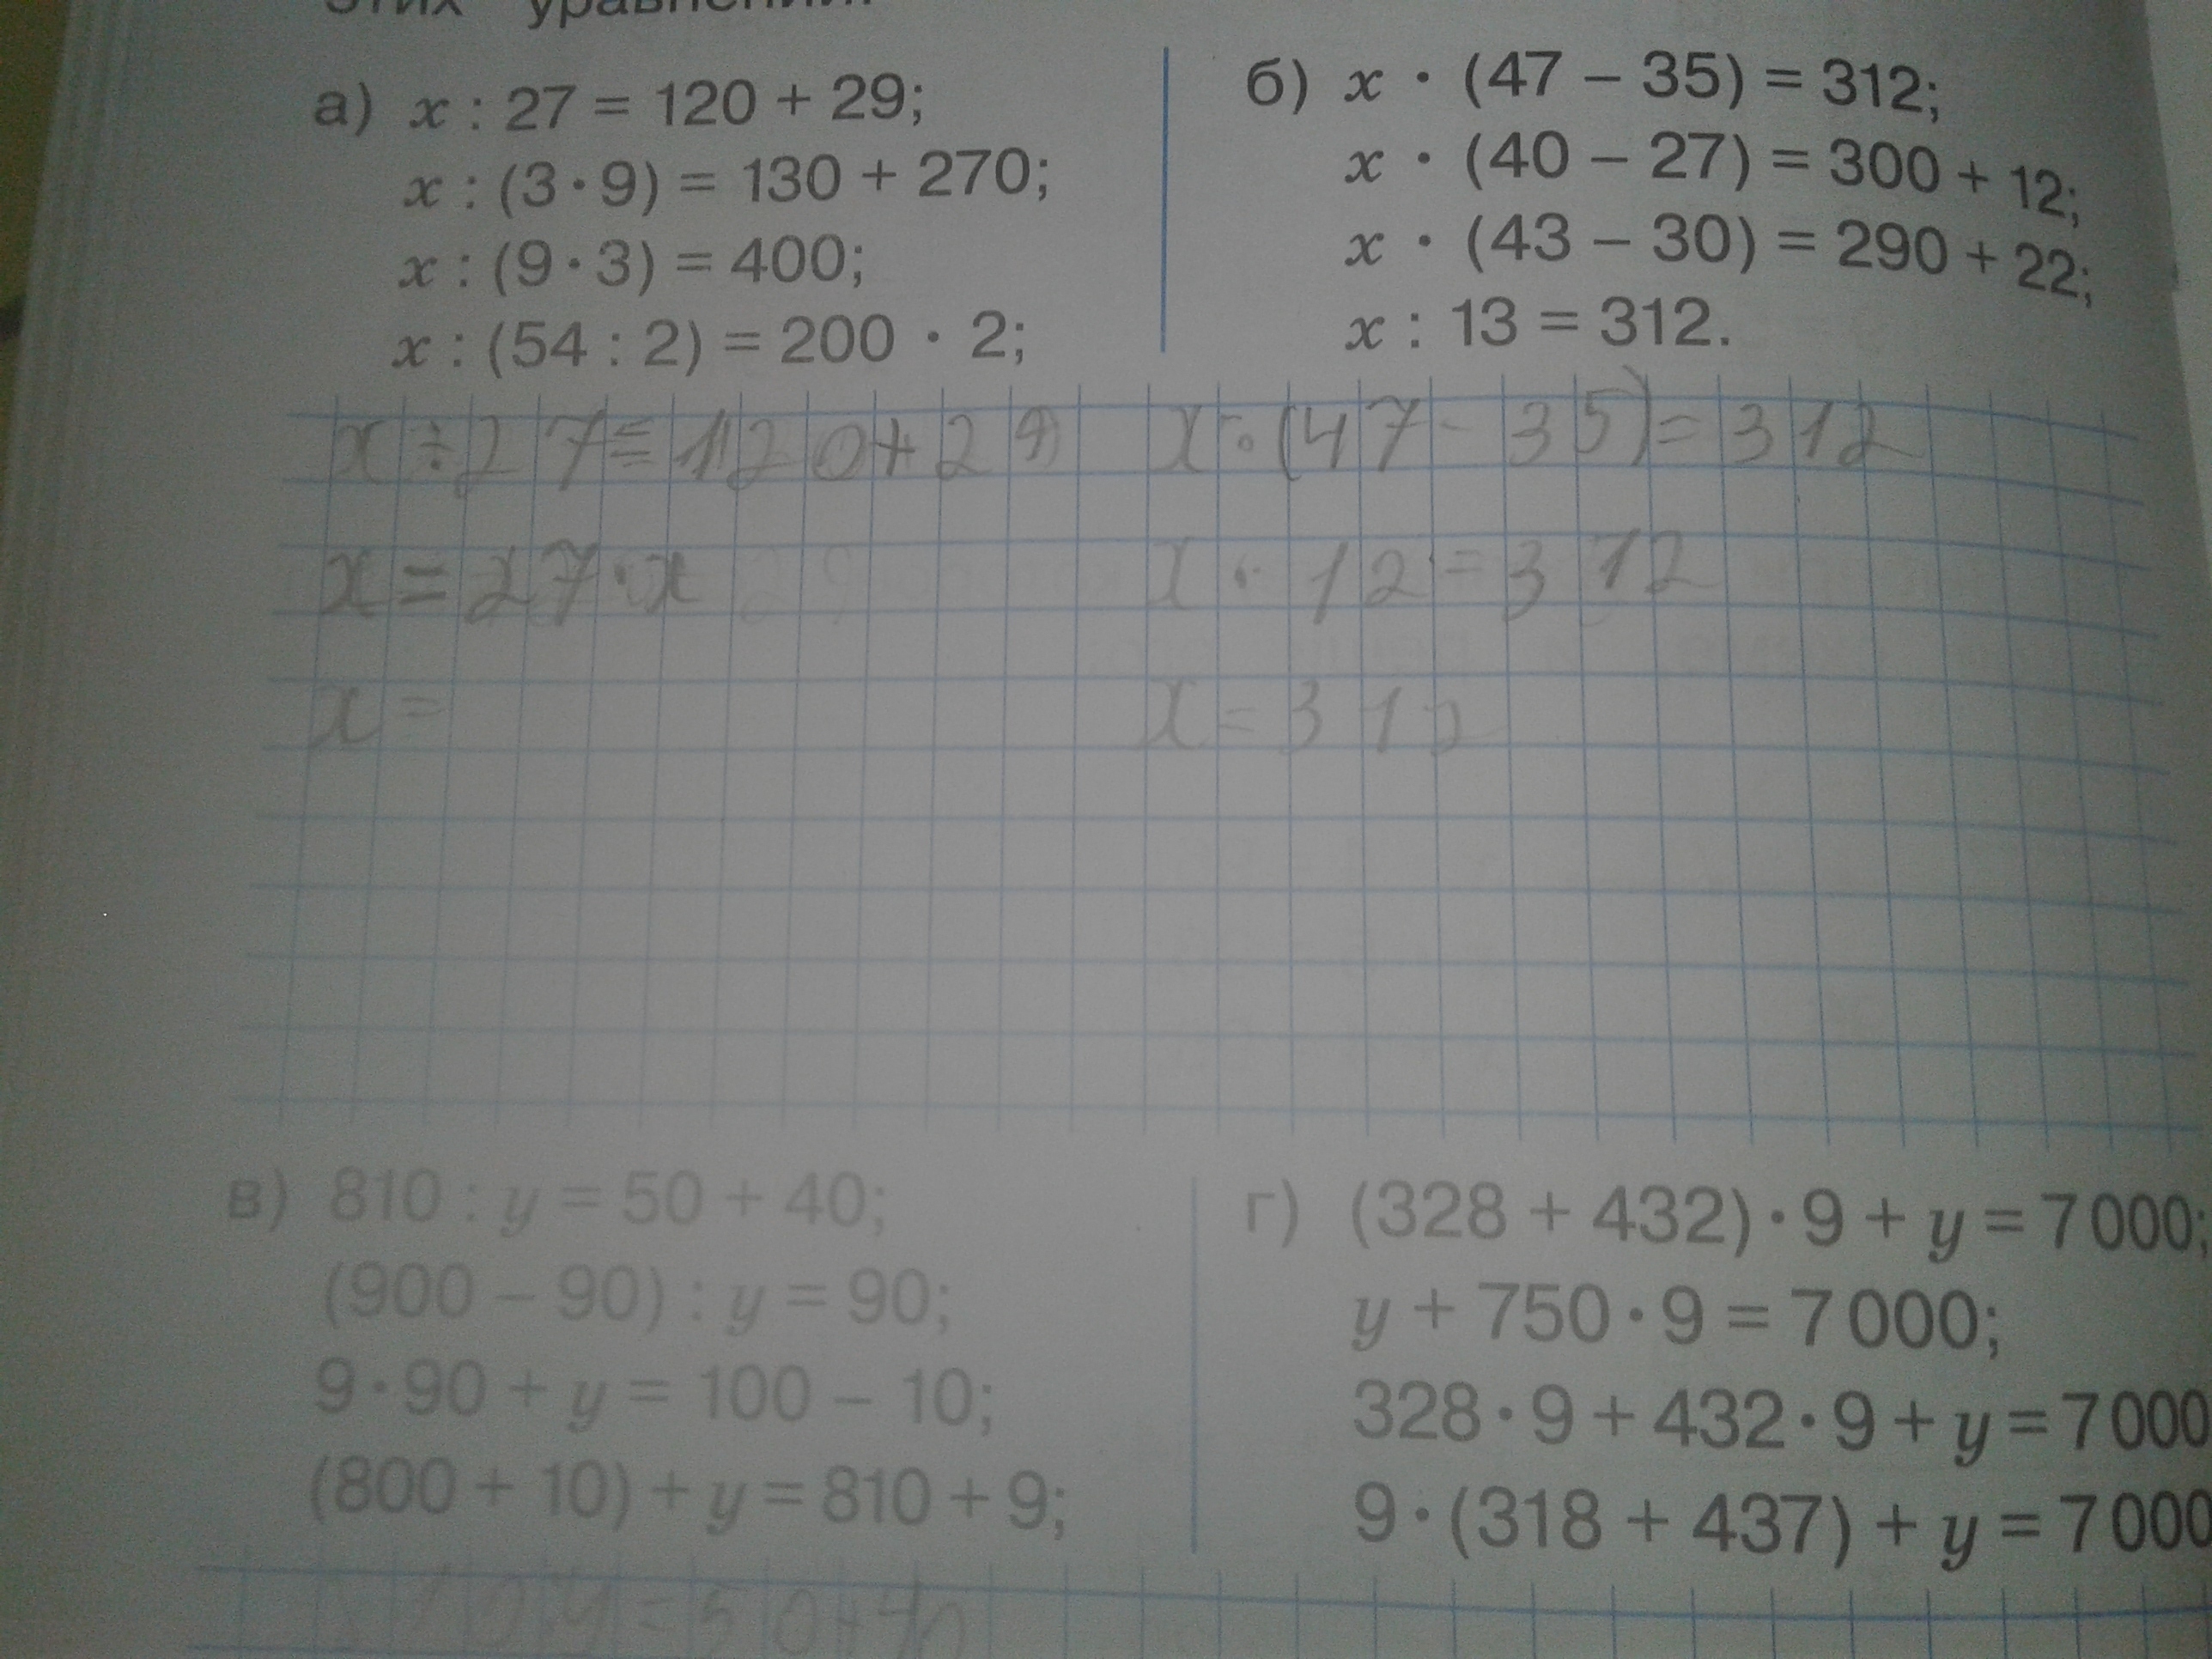 этих уравнений.
а) x : 27 = 120 + 29;
x : (3 · 9) = 130 + 270;
x : (9 · 3) = 400;
x : (54 : 2) = 200 · 2;
б) x · (47 – 35) = 312;
x · (40 – 27) = 300 + 12;
x · (43 – 30) = 290 + 22;
x : 13 = 312.
x ÷ 27 = 120 + 29
x = 27 · x
x =
x · (47 - 35) = 312
x · 12 = 312
x = 312
в) 810 : y = 50 + 40;
(900 – 90) : y = 90;
9 · 90 + y = 100 – 10;
(800 + 10) + y = 810 + 9;
г) (328 + 432) · 9 + y = 7 000;
y + 750 · 9 = 7 000;
328 · 9 + 432 · 9 + y = 7 000
9 · (318 + 437) + y = 7 000
y = 50 + 40